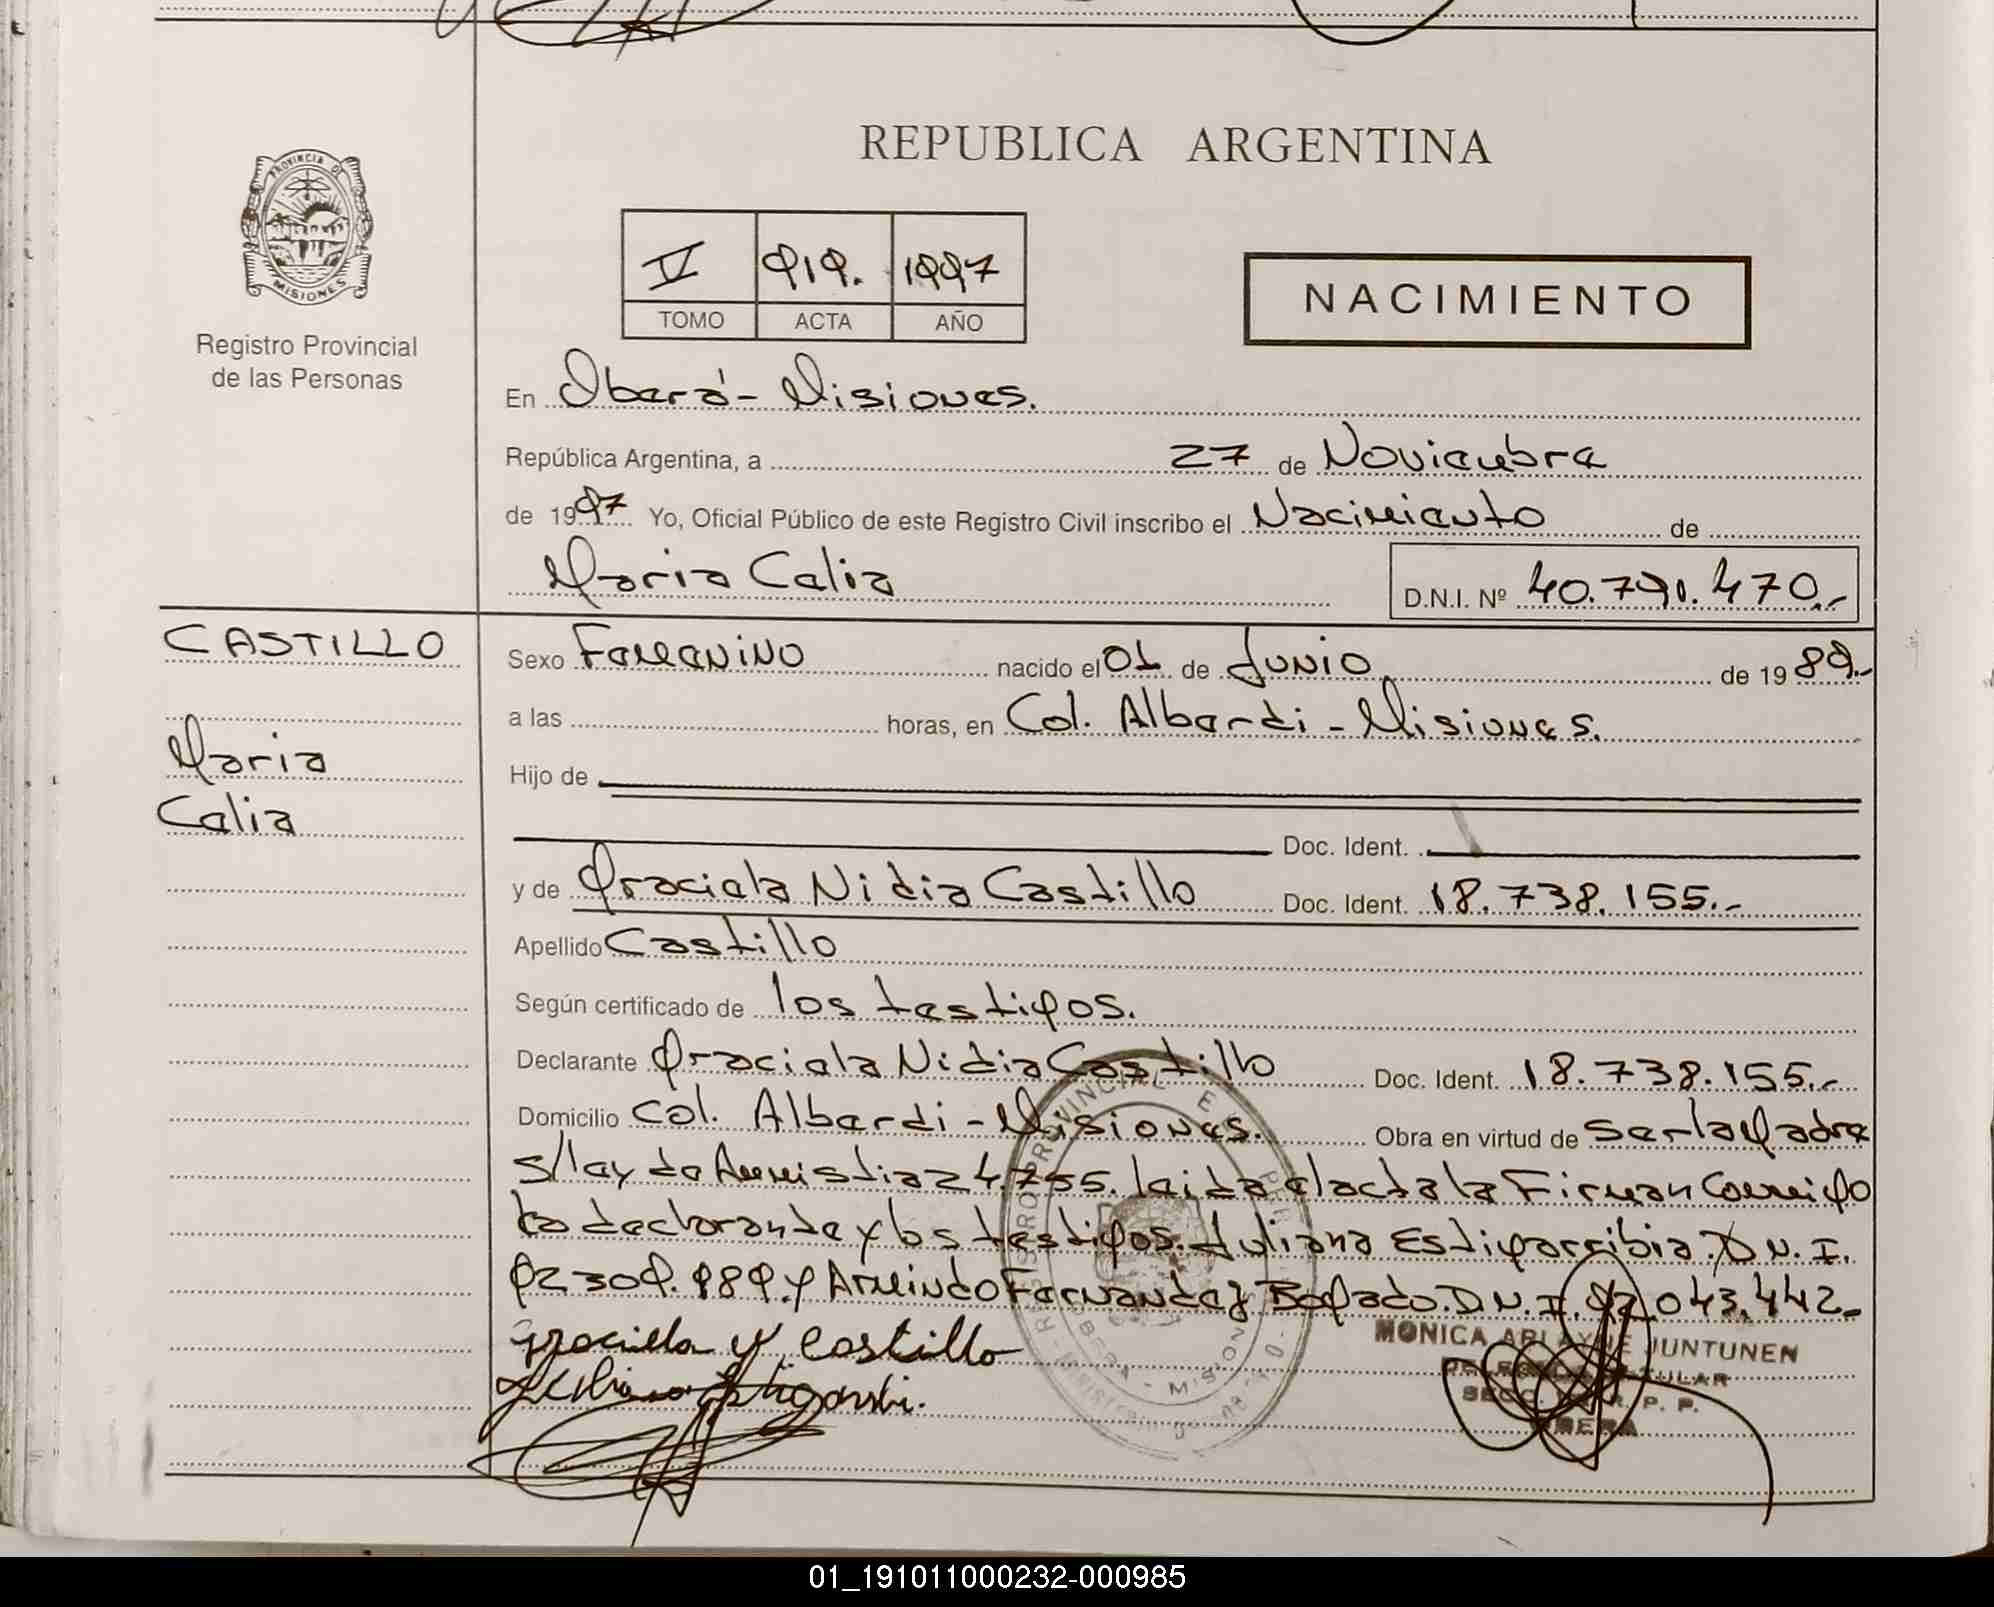 REPUBLICA ARGENTINA
PROVINCIA DE
MISIONES
Registro Provincial
de las Personas
V 919. 1997
TOMO ACTA AÑO
NACIMIENTO
En Oberá - Misiones.
República Argentina, a 27 de Noviembre
de 1997 Yo, Oficial Público de este Registro Civil inscribo el Nacimiento de
Maria Celia
D.N.I. Nº 40.790.470.-
CASTILLO
Maria
Celia
Sexo Femenino nacido el 01 de Junio de 1989.-
a las horas, en Col. Alberdi - Misiones.
Hijo de
Doc. Ident.
y de Graciela Nidia Castillo Doc. Ident. 18.738.155.-
Apellido Castillo
Según certificado de los testigos.
Declarante Graciela Nidia Castillo Doc. Ident. 18.738.155.-
Domicilio Col. Alberdi - Misiones. Obra en virtud de ser la Madre
s/ley de Amnistia 24.755. Leida el acta la Firman Conmigo
la declarante y los testigos. Juliana Estigarribia. D.N.I.
92309.989. y Armindo Fernandez Bogado. D.N.I. 92.043.442.-
Graciella Y castillo
MONICA JUNTUNEN
TITULAR
R. P. P.
OBERA
REGISTRO PROVINCIAL
OBERA - MISIONES
01_191011000232-000985